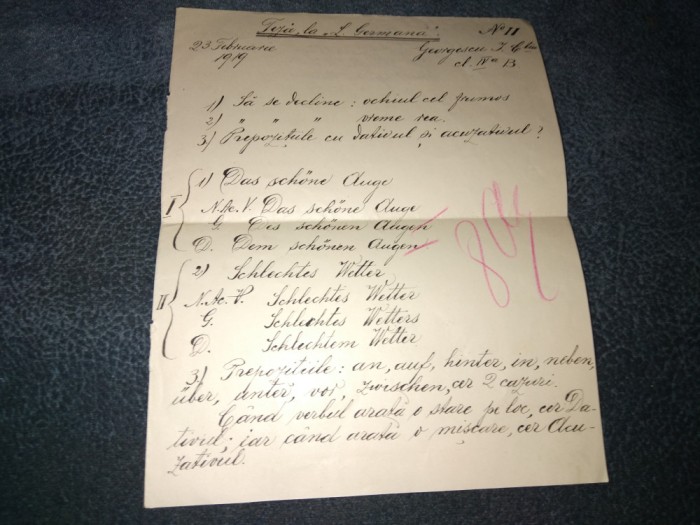 Teză la „L. Germană".
No 11
23 Februarie
1919
Georgescu I. C-tin
cl. IV-a B
1) Să se decline: ochiul cel frumos
2) „ „ „ vreme rea.
3) Prepozițiile cu dativul și acuzativul?
I
1) Das schöne Auge
N.Ac.V. Das schöne Auge
G. Des schönen Augen
D. Dem schönen Augen
II
2) Schlechtes Wetter
N.Ac.V. Schlechtes Wetter
G. Schlechtes Wetters
D. Schlechtem Wetter
3) Prepozitiile: an, auf, hinter, in, neben,
über, unter, vor, zwischen, cer 2 cazuri.
Când verbul arată o stare pe loc, cer Da-
tivul; iar când arată o mișcare, cer Acu-
zativul.